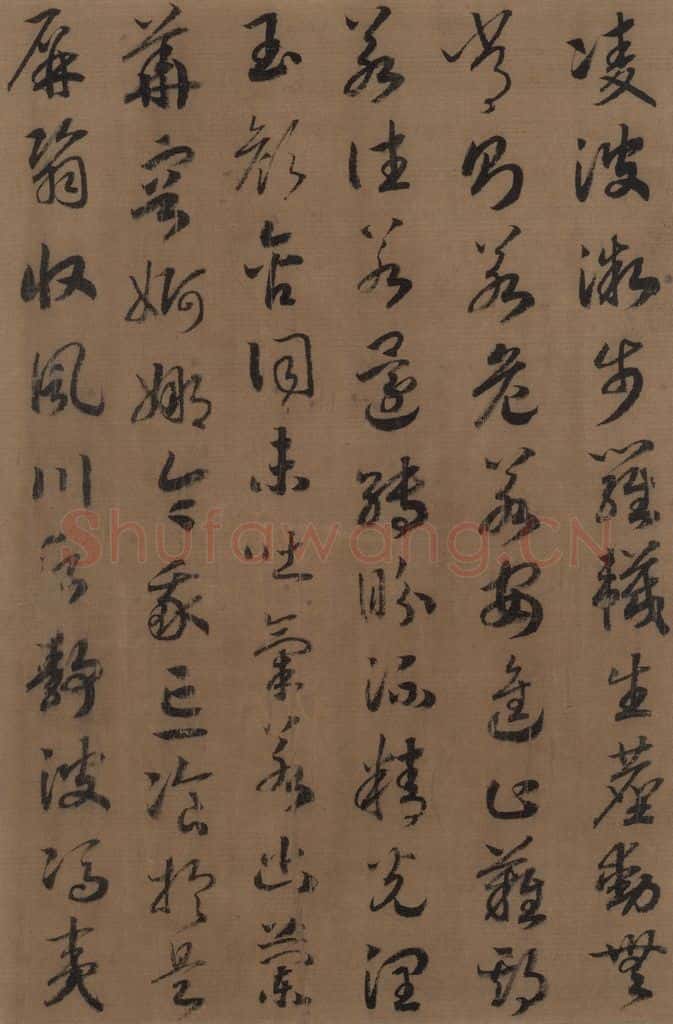 凌波微步羅韈生塵動無
常則若危若安進止難期
若往若還轉眄流精光潤
玉顔含詞未吐氣若幽蘭
華容婀娜令我忘飡於是
屏翳收風川后靜波馮夷
Shufawang.CN